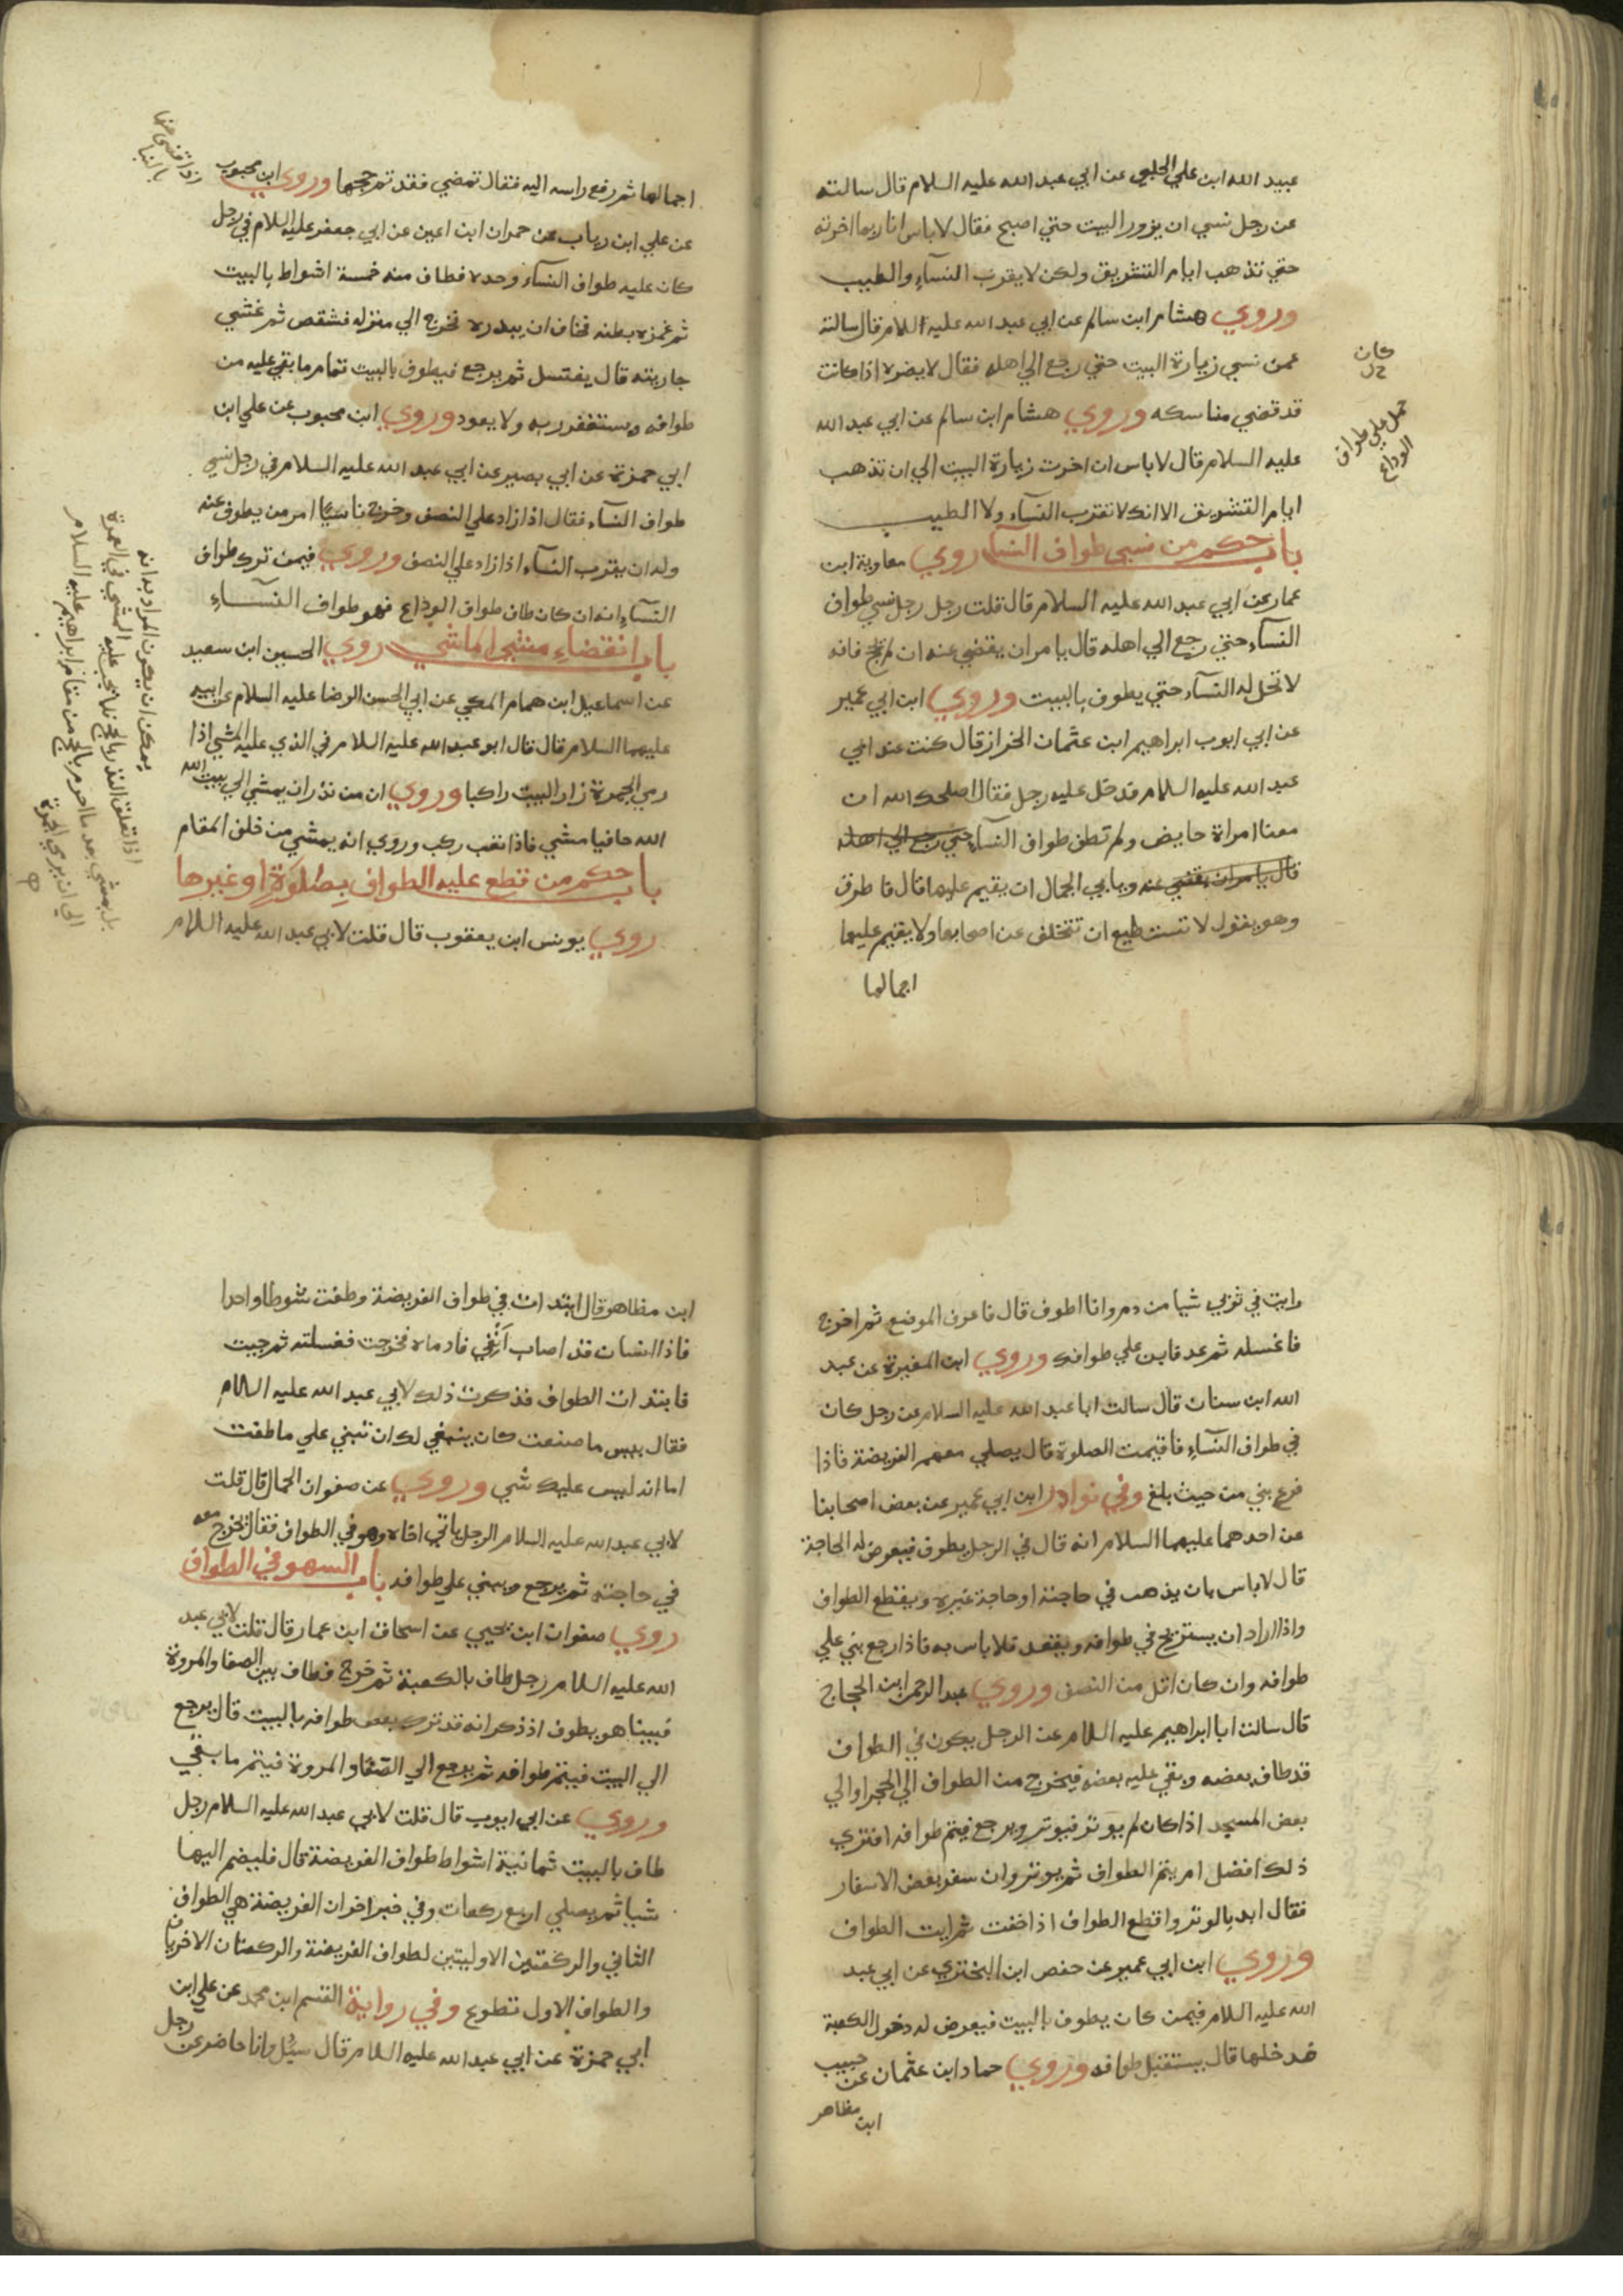 عبيد الله ابن علي الحلبي عن ابي عبد الله عليه السلام قال سالته
عن رجل نسي ان يزور البيت حتي اصبح فقال لا باس انا ربما اخرته
حتي تذهب ايام التشريق ولكن لا يقرب النسآء والطيب
وروي هشام ابن سالم عن ابي عبد الله عليه السلام قال سالته
عمن نسي زيارة البيت حتي رجع الي اهله فقال لا يضره اذا كانت
قد قضي مناسكه وروي هشام ابن سالم عن ابي عبد الله
عليه السلام قال لا باس ان اخرت زيارة البيت الي ان تذهب
ايام التشريق الا انك لا تقرب النسآء ولا الطيب
باب حكم من نسي طواف النسآء روي معاوية ابن
عمار عن ابي عبد الله عليه السلام قال قلت رجل رجل نسي طواف
النسآء حتي رجع الي اهله قال يامر ان يقضي عنه ان لم يحج فانه
لا تحل له النسآء حتي يطوف بالبيت وروي ابن ابي عمير
عن ابي ايوب ابراهيم ابن عثمان الخراز قال كنت عند ابي
عبد الله عليه السلام فدخل عليه رجل فقال اصلحك الله ان
معنا امراة حايض ولم تطف طواف النسآء حتي رجع الي اهله
قال يامر ان يقضي عنه ويابي الجمال ان يقيم عليها قال فاطرق
وهو يقول لا تستطيع ان تتخلف عن اصحابها ولا يقيم عليها
اجمالها
كان
خل
حمل علي طواف
الوداع
اجمالها ثم رفع راسه اليه فقال تمضي فقد تم حجها وروي ابن محبوب
عن علي ابن رياب عن حمران ابن اعين عن ابي جعفر عليه السلام في رجل
كان عليه طواف النسآء وحده فطاف منه خمسة اشواط بالبيت
ثم غمزه بطنه فخاف ان يبدره فخرج الي منزله فشقص ثم غشي
جاريته قال يغتسل ثم يرجع فيطوف بالبيت تمام ما بقي عليه من
طوافه ويستغفر ربه ولا يعود وروي ابن محبوب عن علي ابن
ابي حمزة عن ابي بصير عن ابي عبد الله عليه السلام في رجل نسي
طواف النسآء فقال اذا زاد علي النصف وخرج ناسيًا امر من يطوف عنه
وله ان يقرب النسآء اذا زاد علي النصف وروي فيمن ترك طواف
النسآء انه ان كان طاف طواف الوداع فهو طواف النسآء
باب انقضاء مشي الماشي روي الحسين ابن سعيد
عن اسماعيل ابن همام المكي عن ابي الحسن الرضا عليه السلام عن ابيه
عليهما السلام قال قال ابو عبد الله عليه السلام في الذي عليه المشي اذا
رمي الجمرة زار البيت راكبا وروي ان من نذر ان يمشي الي بيت الله
الله حافيا مشي فاذا تعب ركب وروي انه يمشي من خلف المقام
باب حكم من قطع عليه الطواف بصلوة او غيرها
روي يونس ابن يعقوب قال قلت لابي عبد الله عليه السلام
يمكن ان يكون المراد به انه
اذا تعلق النذر بالحج فلا يجب عليه المشي في العمرة
بل يمشي بعد ما احرم بالحج من مقام ابراهيم عليه السلام
الي ان يرمي الجمرة
رايت في ثوبي شيا من دم وانا اطوف قال فاعرف الموضع ثم اخرج
فاغسله ثم عد فابن علي طوافك وروي ابن المغيرة عن عبد
الله ابن سنان قال سالت ابا عبد الله عليه السلام عن رجل كان
في طواف النسآء فاقيمت الصلوة قال يصلي معهم الفريضة فاذا
فرغ بني من حيث بلغ وفي نوادر ابن ابي عمير عن بعض اصحابنا
عن احدهما عليهما السلام انه قال في الرجل يطوف فيعرض له الحاجة
قال لا باس بان يذهب في حاجته او حاجة غيره ويقطع الطواف
واذا اراد ان يستريح في طوافه ويقعد فلا باس به فاذا رجع بني علي
طوافه وان كان اقل من النصف وروي عبد الرحمن ابن الحجاج
قال سالت ابا ابراهيم عليه السلام عن الرجل يكون في الطواف
قد طاف بعضه وبقي عليه بعضه فيخرج من الطواف الي الحجر او الي
بعض المسجد اذا كان لم يوتر فيوتر ويرجع فيتم طوافه افتري
ذلك افضل ام يتم الطواف ثم يوتر وان سفر بعض الاسفار
فقال ابد بالوتر واقطع الطواف اذا خفت ثم ايت الطواف
وروي ابن ابي عمير عن حفص ابن البختري عن ابي عبد
الله عليه السلام فيمن كان يطوف بالبيت فيعرض له دخول الكعبة
فدخلها قال يستقبل طوافه وروي حماد ابن عثمان عن حبيب
ابن مظاهر
ابن مظاهر قال ابتدات في طواف الفريضة وطفت شوطا واحدا
فاذا انسان قد اصاب اَنْفي فادماه فخرجت فغسلته ثم جيت
فابتدات الطواف فذكرت ذلك لابي عبد الله عليه السلام
فقال بيس ما صنعت كان ينبغي لك ان تبني علي ما طفت
اما انه ليس عليك شي وروي عن صفوان الجمال قال قلت
لابي عبد الله عليه السلام الرجل ياتي اخاه وهو في الطواف فقال يخرج معه
في حاجته ثم يرجع ويبني علي طوافه باب السهو في الطواف
روي صفوان ابن يحيي عن اسحاق ابن عمار قال قلت لابي عبد
الله عليه السلام رجل طاف بالكعبة ثم خرج فطاف بين الصفا والمروة
فبينا هو يطوف اذ ذكر انه قد ترك بعض طوافه بالبيت قال يرجع
الي البيت فيتم طوافه ثم يرجع الي الصفا والمروة فيتم ما بقي
وروي عن ابي ايوب قال قلت لابي عبد الله عليه السلام رجل
طاف بالبيت ثمانية اشواط طواف الفريضة قال فليضم اليها
ستا ثم يصلي اربع ركعات وفي خبر اخر ان الفريضة هي الطواف
الثاني والركعتين الاوليتين لطواف الفريضة والركعتان الاخريان
والطواف الاول تطوع وفي رواية القسم ابن محمد عن علي ابن
ابي حمزة عن ابي عبد الله عليه السلام قال سُئِل وانا حاضر عن رجل